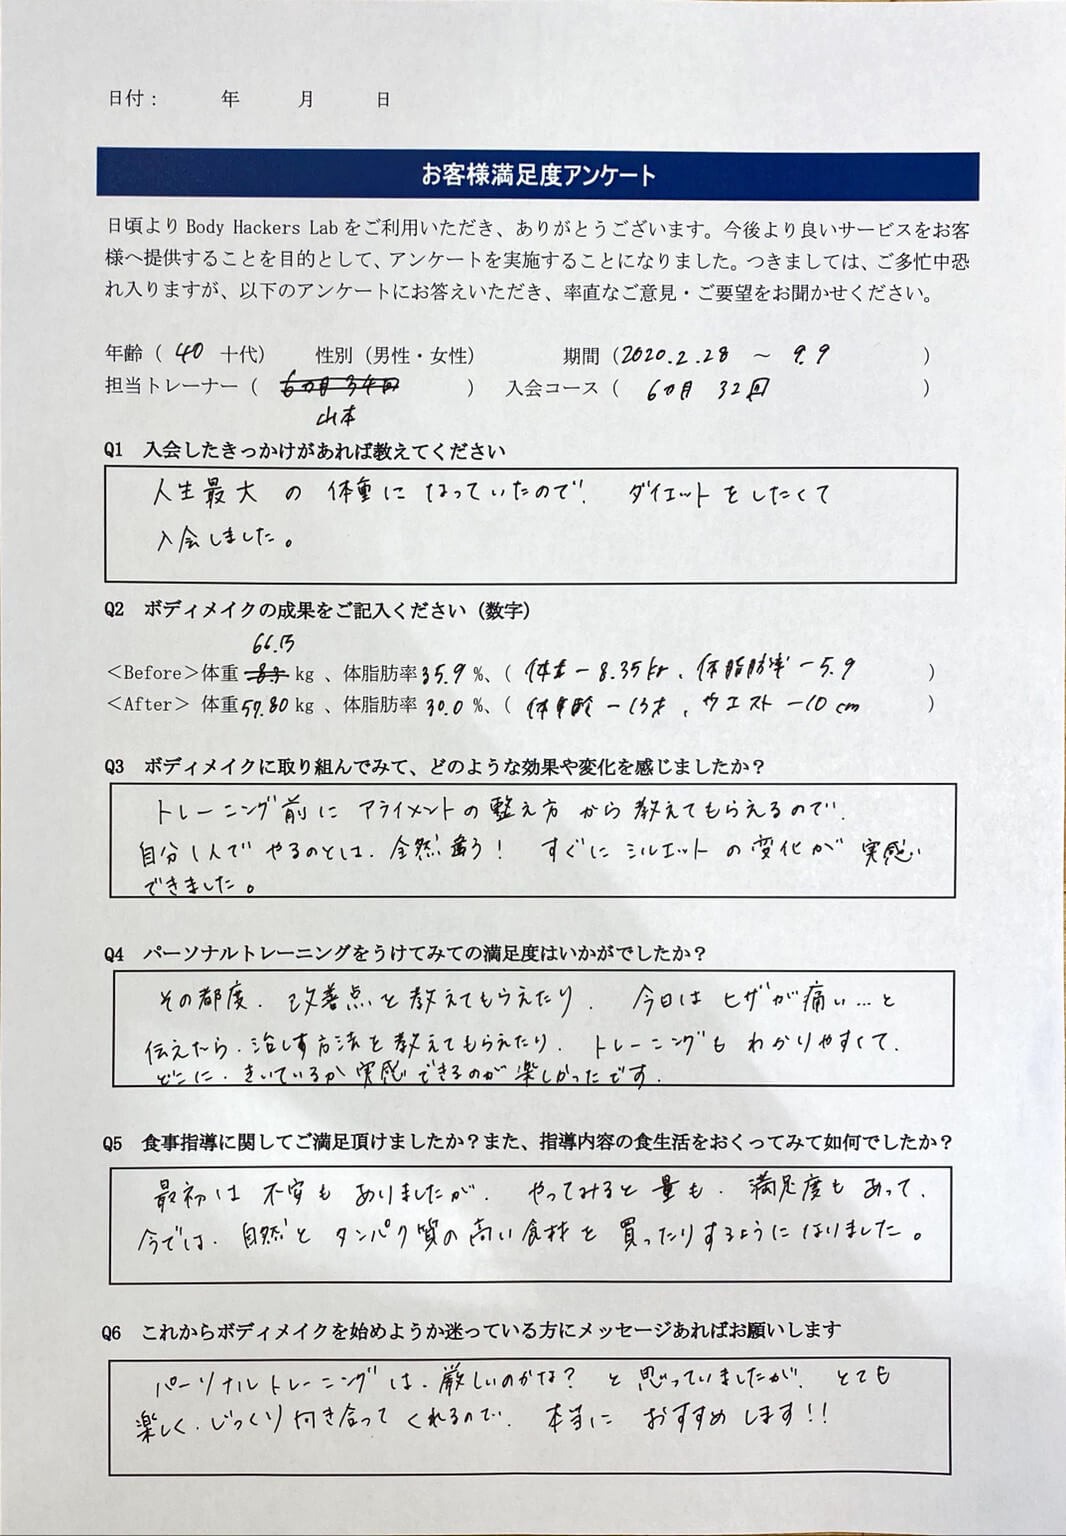 日付： 年 月 日
お客様満足度アンケート
日頃より Body Hackers Lab をご利用いただき、ありがとうございます。今後より良いサービスをお客
様へ提供することを目的として、アンケートを実施することになりました。つきましては、ご多忙中恐
れ入りますが、以下のアンケートにお答えいただき、率直なご意見・ご要望をお聞かせください。
年齢（ 40 十代） 性別（男性・女性） 期間（2020.2.28 ～ 9.9 ）
担当トレーナー（ 6カ月 34回 ） 入会コース（ 6カ月 32回 ）
山本
Q1 入会したきっかけがあれば教えてください
人生最大 の 体重に なっていたので、 ダイエットをしたくて
入会しました。
Q2 ボディメイクの成果をご記入ください（数字）
66.15
＜Before＞体重 kg 、体脂肪率 35.9 %、（ 体重 －8.35kg、体脂肪率 －5.9 ）
＜After＞ 体重 57.80 kg 、体脂肪率 30.0 %、（ 体年齢 －13才、ウエスト －10cm ）
Q3 ボディメイクに取り組んでみて、どのような効果や変化を感じましたか？
トレーニング前に アライメントの整え方 から 教えてもらえるので、
自分1人で やるのとは、全然違う！ すぐに シルエット の変化が 実感
できました。
Q4 パーソナルトレーニングをうけてみての満足度はいかがでしたか？
その都度、改善点を教えてもらえたり、 今日は ヒザが痛い…と
伝えたら、治し方方法を教えてもらえたり、トレーニングも わかりやすくて、
どこに、きいているか 実感 できるのが 楽しかったです。
Q5 食事指導に関してご満足頂けましたか？また、指導内容の食生活をおくってみて如何でしたか？
最初は 不安も ありましたが、 やってみると 量も、満足度も あって、
今では、自然と タンパク質の高い食材を 買ったりするようになりました。
Q6 これからボディメイクを始めようか迷っている方にメッセージあればお願いします
パーソナルトレーニングは、厳しいのかな？ と 思っていましたが、とても
楽しく、じっくり 向き合って くれるので、 本当に おすすめ します！！